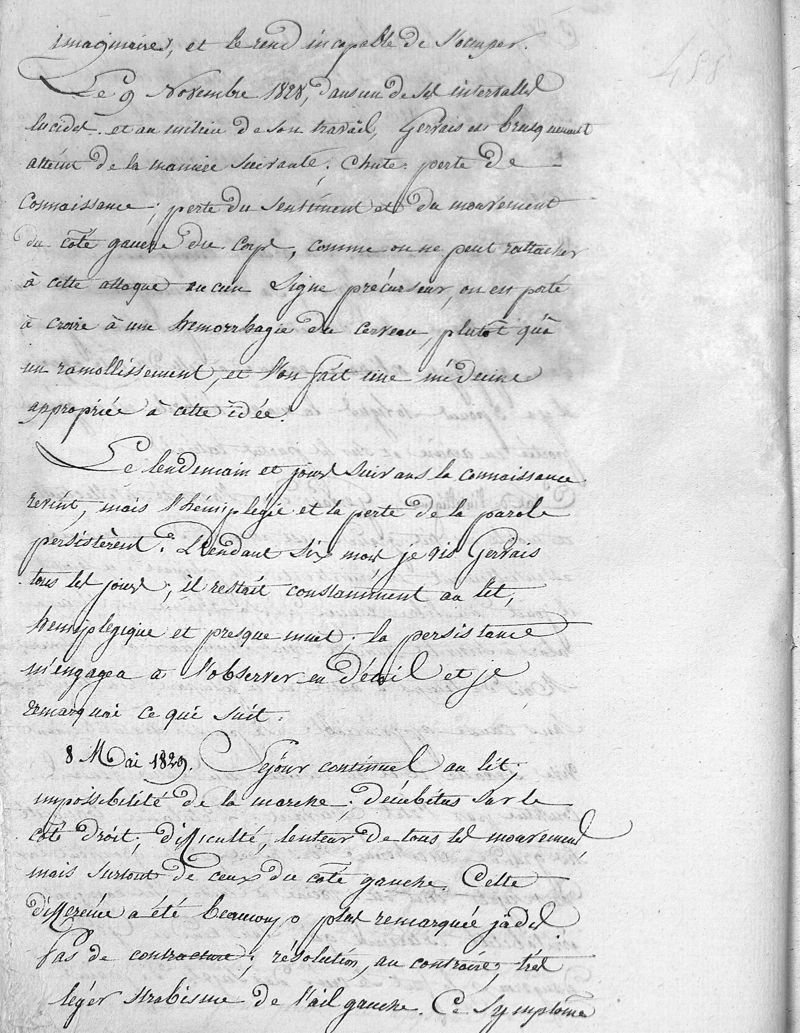 imaginaires, et le rend incapable de s'occuper.
488
Le 9 Novembre 1828, dans un de ses intervalles
lucides et au milieu de son travail, Gervais est brusquement
atteint de la maniere suivante; Chute perte de
Connaissance; perte du sentiment et du mouvement
du côté gauche du corps, comme on ne peut rattacher
à cette attaque aucun signe précurseur, on est porté
à croire à une hemorrhagie du cerveau, plutôt qu'à
un ramollissement, et l'on fait une médecine
appropriée à cette idée.
Le lendemain et jours suivans la connaissance
revint, mais l'hémiplégie et la perte de la parole
persistèrent. Pendant six mois je vis Gervais
tous les jours; il restait constamment au lit,
hemiplégique et presque muet; la persistance
m'engagea a l'observer en détail et je
remarquai ce qui suit.
8 Mai 1829. Séjour continuel au lit;
impossibilité de la marche; décubitus sur le
côté droit; difficulté, lenteur de tous les mouvements
mais surtout de ceux du côté gauche. Cette
différence a été beaucoup plus remarquée jadis
Pas de contracture; résolution, au contraire; très
léger strabisme de l'œil gauche. Ce symptôme